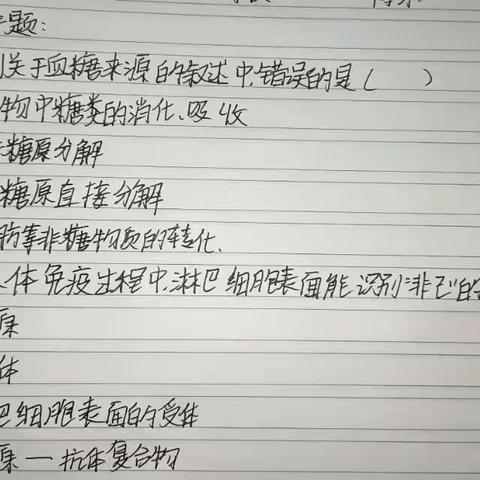 题:
关于血糖来源的叙述中,错误的是( )
物中糖类的消化、吸收
糖原分解
糖原直接分解
肪等非糖物质的转化.
体免疫过程中,淋巴细胞表面能识别"非己"的
原
体
巴细胞表面的受体
原—抗体复合物